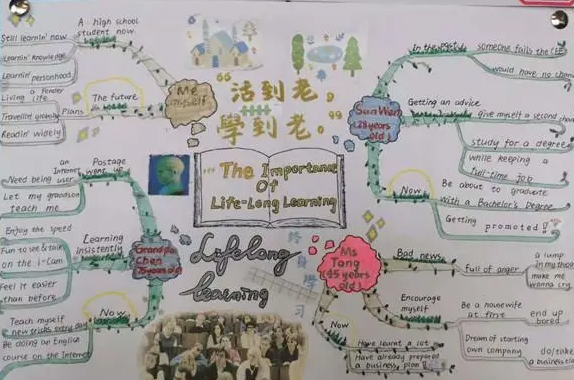 A high school
student now
Still learnin' now
Learnin' knowledge
Learnin' personhood
The future
Plans
Living a
Life
Travellin'
Readin' widely
Me
myself
“活到老，
學到老。”
The Importance
Of
Life-Long Learning
Lifelong
learning
終身學習
Sun Wen
(28 years
old)
In the past
someone fails the CEE
would have no chan
Getting an advice
give myself a second chan
study for a degree
while keeping a
full-time job
Now
Be about to graduate
with a Bachelor's Degree
Getting promoted!
Grandpa
Chen
(75 years old)
Postage
went up
an
Internet
user
Need being
Let my grandson
teach me
Learning
insistently
Enjoy the speed
Fun to see & talk
on the i-Cam
Feel it easier
than before
Now
Teach myself
new tricks every day
Be doing an English
course on the Internet
Ms
Tang
(45 years
old)
Bad news
full of anger
a lump
in my throat
make me
wanna cry
Encourage
myself
Be a housewife
at first
end up
bored
Dream of starting
own company
do/take
a business
Now
Have learnt a lot
Have already prepared
a business plan